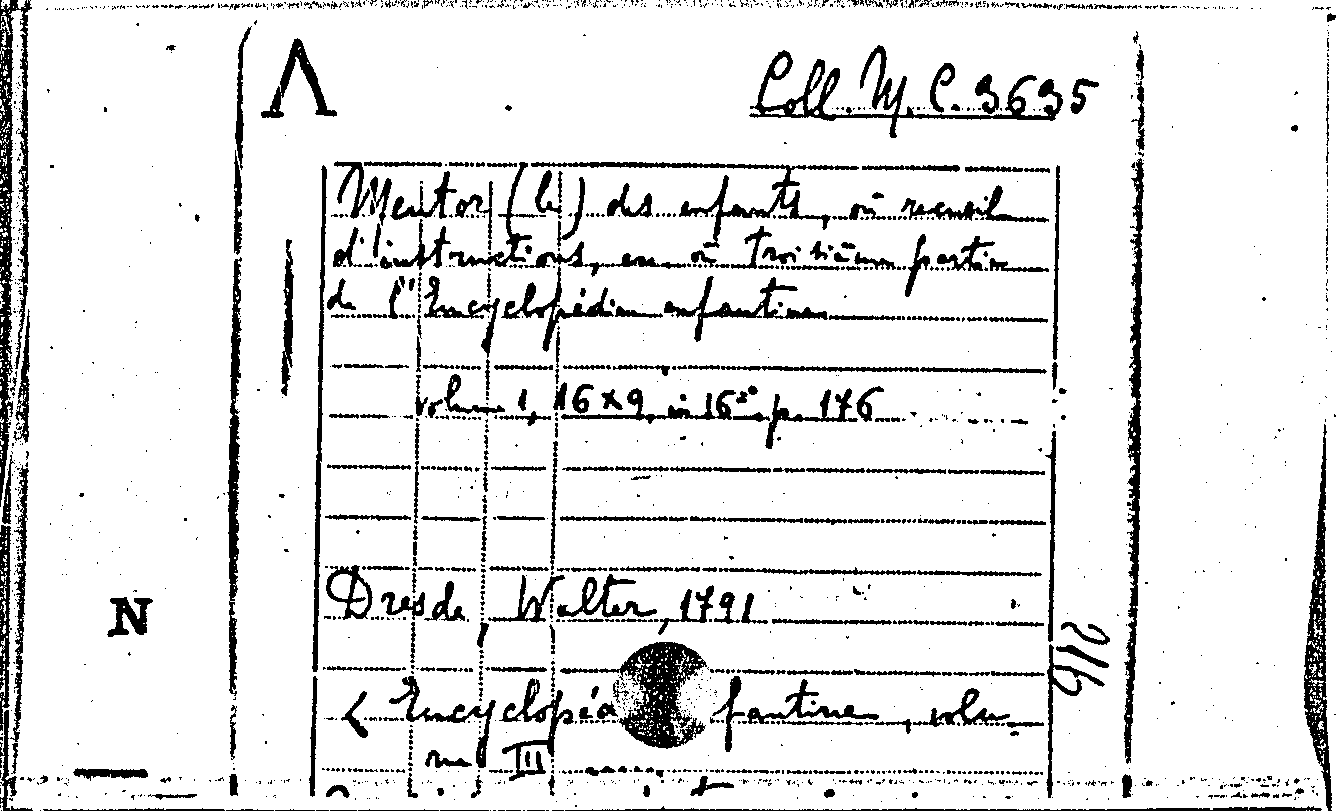 Λ
Coll. M. C. 3635
Mentor (le) des enfants, ou recueil
d'instructions, ou troisième partie
de l'Encyclopédie enfantine
volume 1, 16 x 9, in 16°, p. 176
Dresde, Walter, 1791
N
< Encyclopé fantine, volu
me III